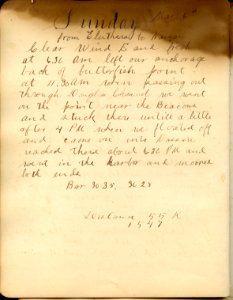 Sunday
From Eleuthera to Nassau
Clear Wind E and fresh
at 6.30 Am left our anchorage
back of butterfish point
at 11.30 Am when passing out
through Douglas Channel we went
on the point near the Beacon
and stuck there until a little
after 4 PM when we floated off
and came on into Nassau
reached there about 6 30 PM and
went in the harbor and moored
both ends
Bar 30 35. 30 28
Distance 55 K
1547